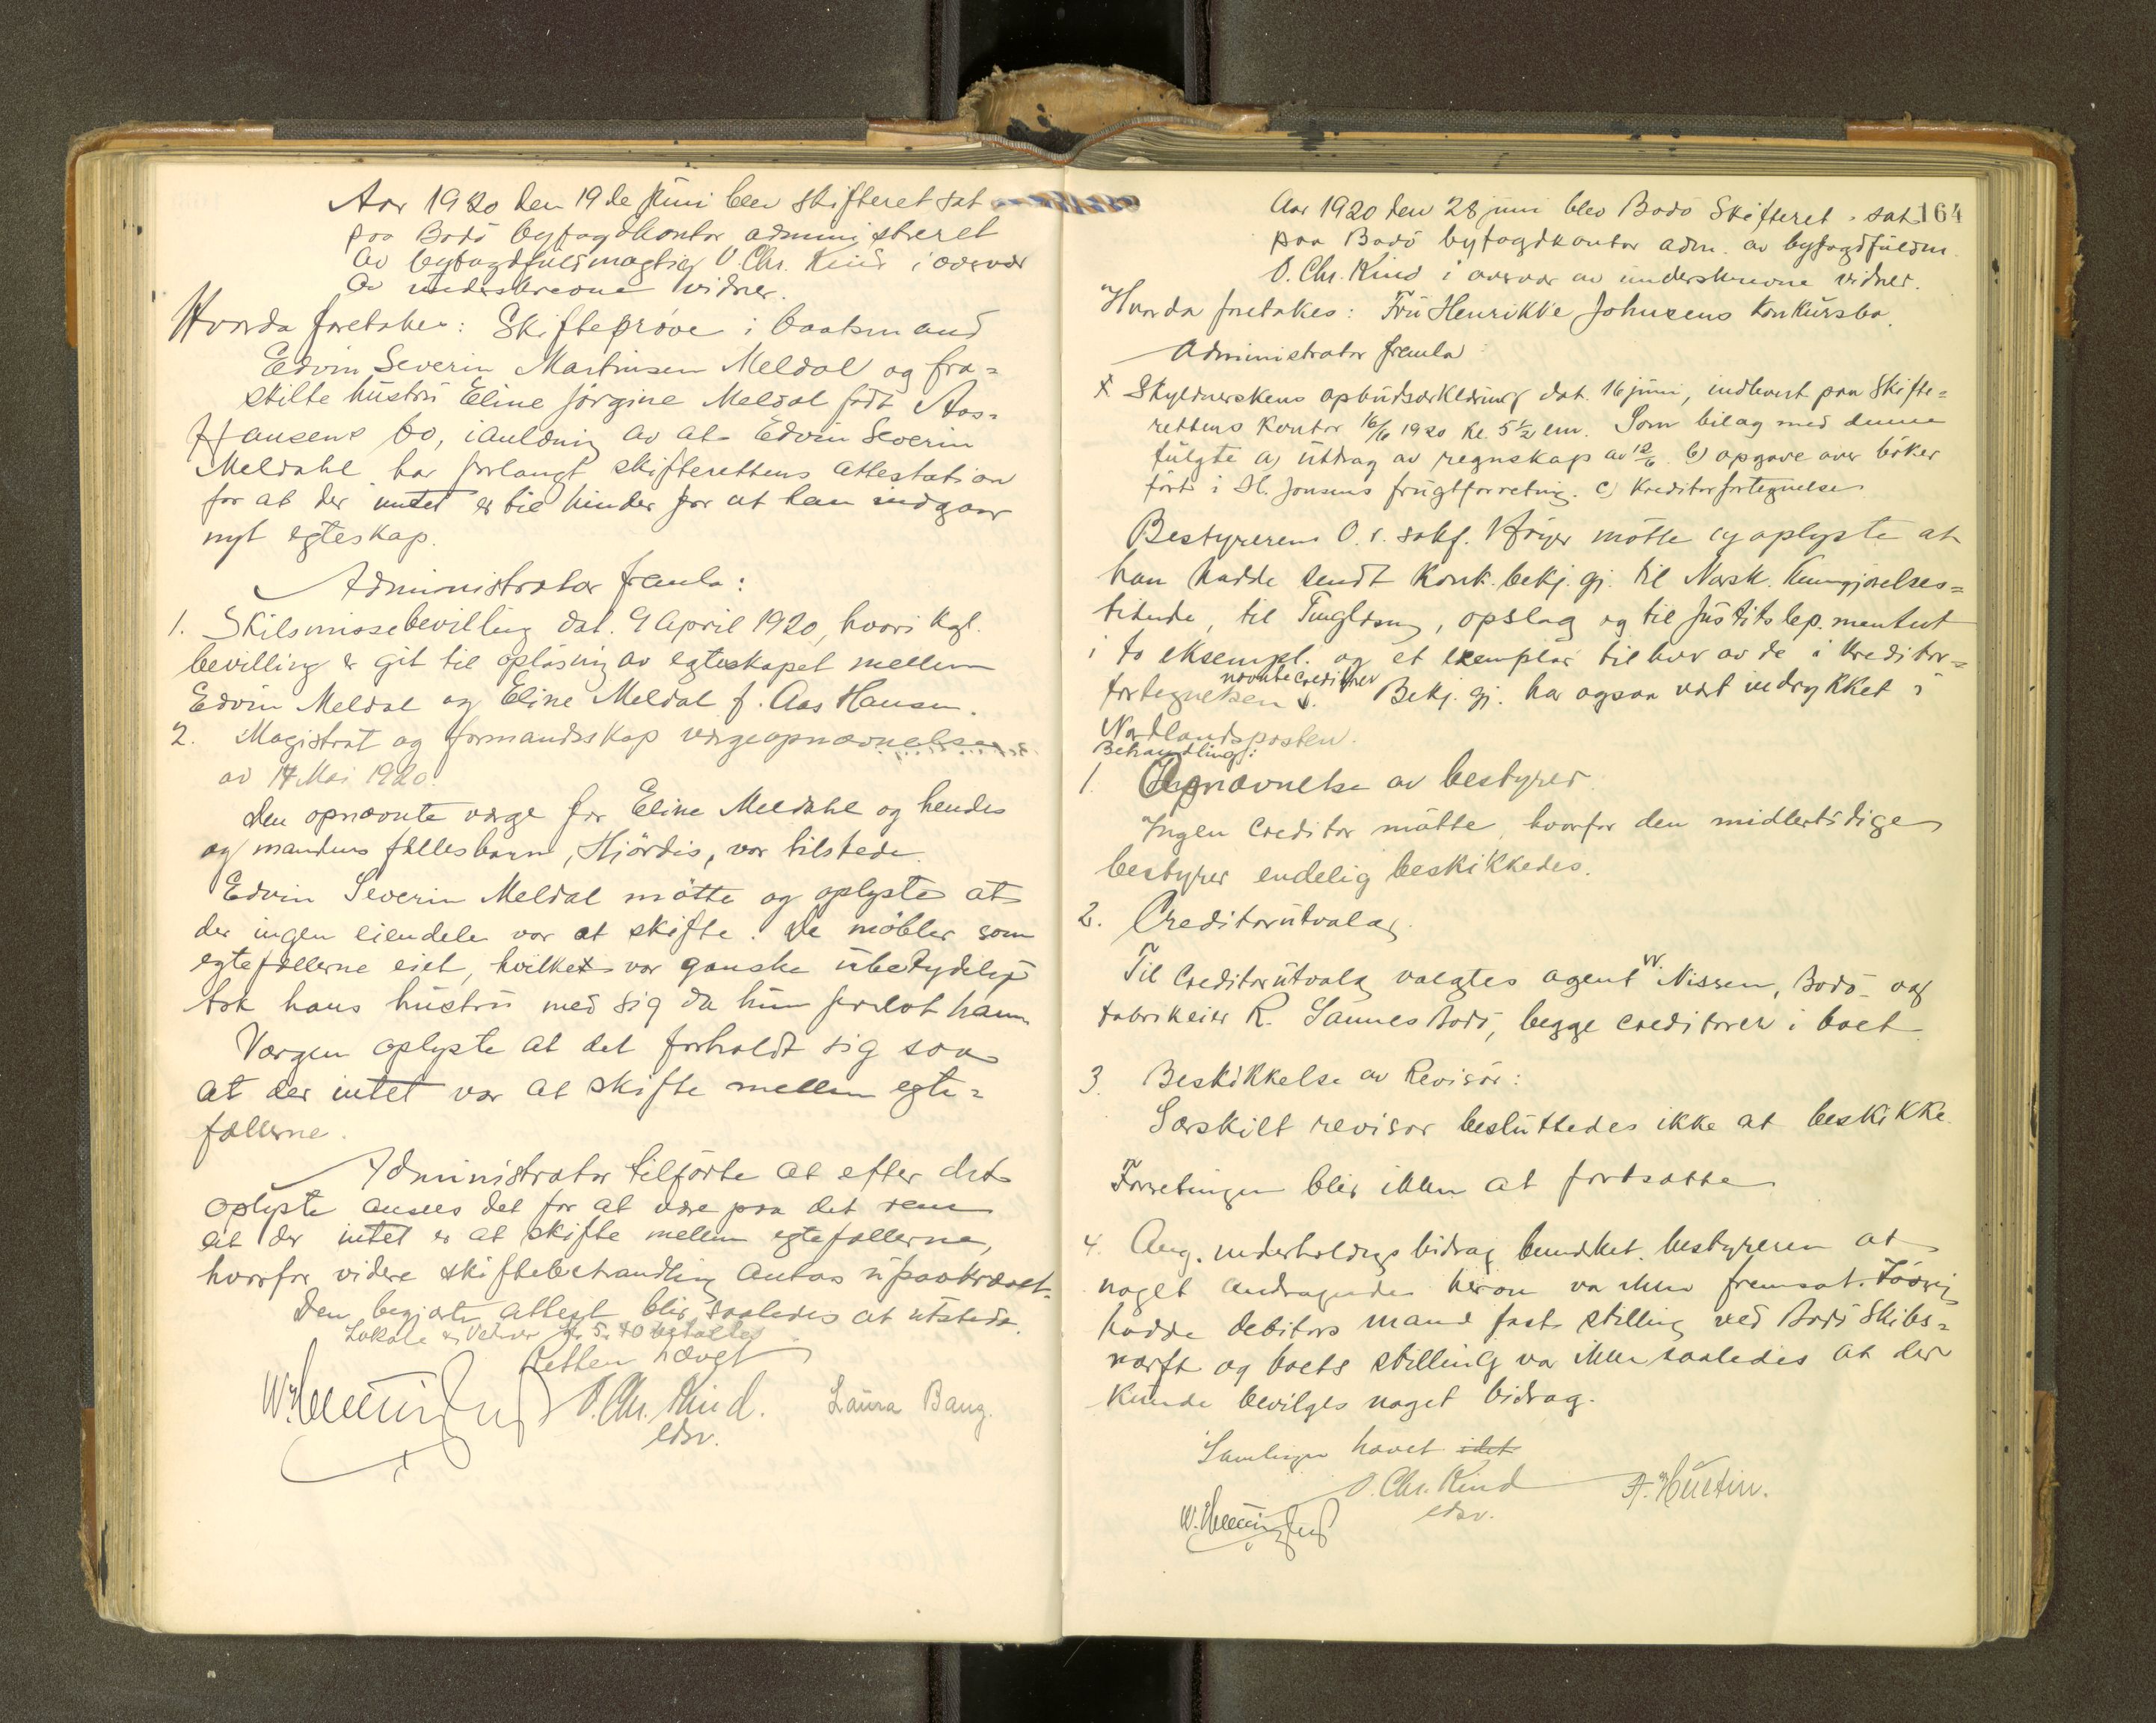 Aar 1920 den 19de juni blev skifteret sat
paa Bodö byfogdkontor administreret
av byfogdfuldmægtig O. Chr. Kind i overvær
av underskrevne vidner.
Hvorda foretokes: Skifteprøve i baatsmand
Edvin Severin Martinsen Meldal og fra=
skilte hustru Eline Jörgine Meldal født Aas-
Hansens bo, i anledning av at Edvin Severin
Meldahl har forlangt skifterettens attestation
for at der intet er til hinder for at han indgaar
nyt egteskap.
Administrator fremla:
1. Skilsmissebevilling dat. 9 April 1920, hvori kgl.
bevilling er git til opløsning av egteskapet mellem
Edvin Meldal og Eline Meldal f. Aas Hansen.
2. Magistrat og formandsskap vergeopnævnelse
av 17 Mai 1920.
Den opnævnte verge for Eline Meldahl og hendes
og mandens fællesbarn, Hjördis, var tilstede.
Edvin Severin Meldal mötte og oplyste at
der ingen eiendele var at skifte. De møbler som
egtefællerne eiet, hvilket var ganske ubetydelig
tok hans hustru med sig da hun forlot ham
Vergen oplyste at det forholdt sig saa
at der intet var at skifte mellem egte=
fællerne.
Administrator tilförte at efter det
oplyste ansees det for at være paa det rene
at der intet er at skifte mellem egtefællerne,
hvorfor videre skiftebehandling antas upaakrævet.
Den begjærte attest blir saaledes at utstede.
Lokale og vidner kr 5.40 betaltes
Retten hævet
O. Chr. Kind.
edsv.
Laura Bang.
164
Aar 1920 den 28 juni blev Bodö Skifteret sat
paa Bodö byfogdkontor adm. av byfogdfuldm.
O. Chr. Kind i overvær av underskrevne vidner.
Hvorda foretokes: Fru Henrikke Johnsens konkursbo.
Administrator fremla:
Skyldnerskens opbudserklæring dat. 16 juni, indlevert paa Skifte=
rettens kontor 16/6 1920 kl. 5 1/2 em. Som bilag med denne
fulgte a) utdrag av regnskap av 12/6. b) opgave over böker
fört i H. Jonsens frugtforretning. c) kreditorfortegnelse
Bestyreren O.r. sakf. mötte og oplyste at
han hadde sendt konk. bekj. gj. til Norsk. Kungjörelses=
tidende, til Tinglæsning, opslag og til justitsdep.mentet
i to eksempl. og et exemplar til hver av de i kreditor=
fortegnelsen nævnte creditorer. Bekj. gj. har ogsaa vært indrykket i
Nordlandsposten.
Behandling:
1. Opnævnelse av bestyrer.
Ingen creditor mötte, hvorfor den midlertidige
bestyrer endelig beskikkedes.
2. Creditorutvalg.
Til Creditorutvalg valgtes agent W. Nissen, Bodö og
fabrikeier R. Sannes Bodö, begge creditorer i boet.
3. Beskikkelse av Revisor:
Særskilt revisor besluttedes ikke at beskikke.
Forretningen blir ikke at fortsætte
4. Ang. underholdningsbidrag bemerket bestyreren at
noget andragende herom var ikke fremsat. Iövrig
hadde debitors mand fast stilling ved Bodö Skibs=
værft og boets stilling var ikke saaledes at der
kunde bevilges noget bidrag.
Samlingen hævet
O. Chr. Kind
edsv.